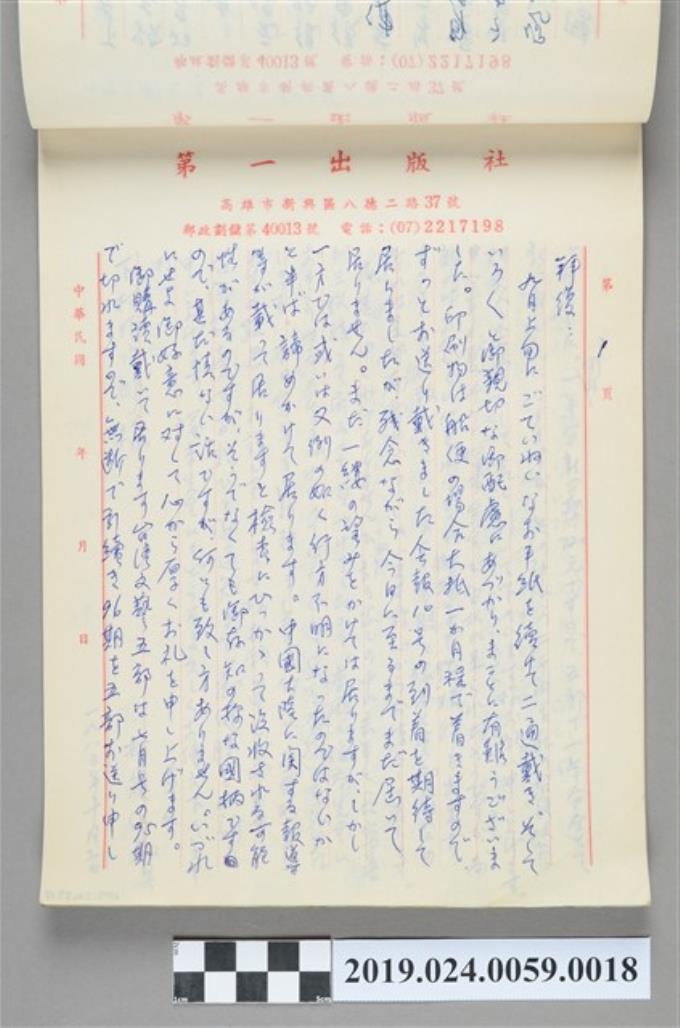 第一出版社
高雄市新興區八德二路37號
郵政劃儲第40013號 電話：(07)2217198
第 1 頁
拝復：
九月上旬にごていねいなお手紙を續けて二通戴き、そして
いろ〱と御親切な御配慮にあづかり、まことに有難うございま
した。印刷物は船便の場合大抵一か月程で着きますので、
ずっとお送り戴きました会報10号の到着を期待して
居りましたが、残念ながら今日に至るまでまだ届いて
居りません。まだ一縷の望みをかけては居りますが、しかし
一方では或いは又例の如く行方不明になったのではないか
と半ば諦めかけて居ります。中國大陸に関する報導
等が載って居りますと検査にひっかゝって没收される可能
性があるのですが、そうでなくても御存知の様な國柄です
ので、甚だ情ない話ですが、何とも致し方ありません。いづれ
にせよ御好意に対して心から厚くお礼を申し上げます。
御購讀戴いて居ります台湾文藝五部は七月号の95期
で切れますので、無断で引續き96期を五部お送り申し
中華民國 年 月 日
2019.024.0059.0018